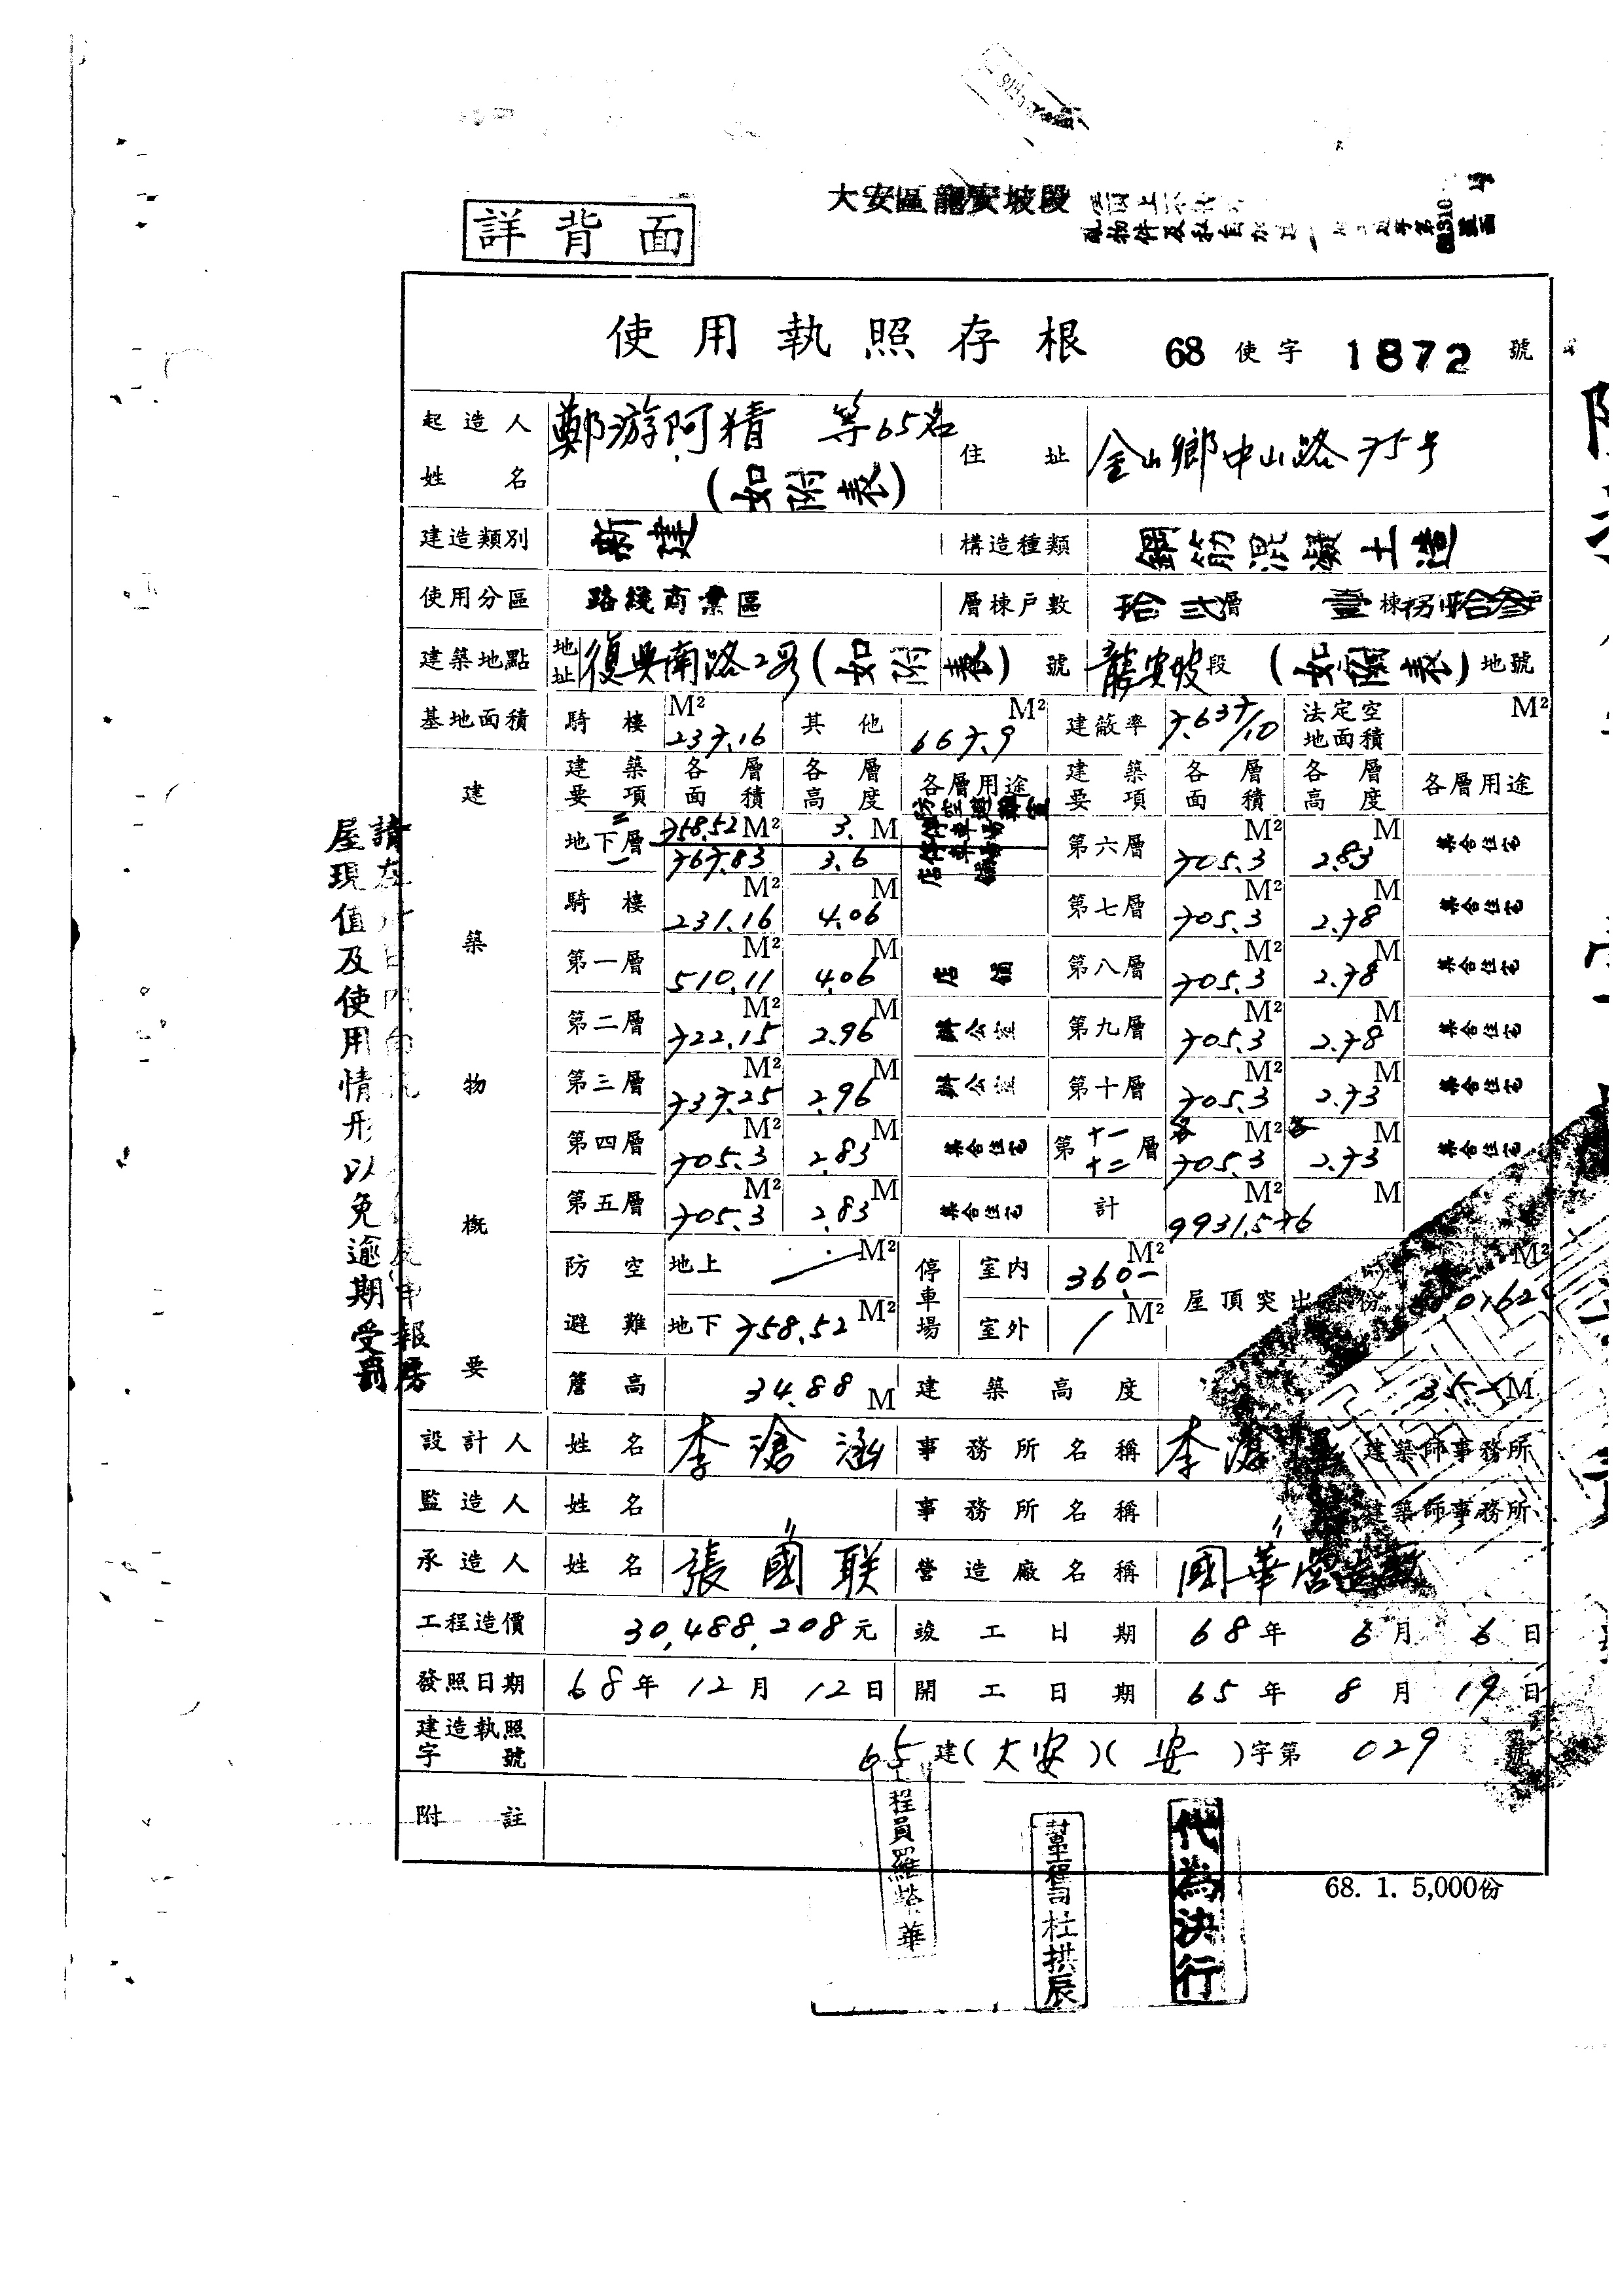 大安區龍安坡段
詳背面
使用執照存根 68 使字 1872 號
起造人姓名 鄭游阿精 等65名 (如附表) 住址 金山鄉中山路75号
建造類別 新建 構造種類 鋼筋混凝土造
使用分區 路綫商業區 層棟戶數 拾弍層 壹棟
建築地點 地址 復興南路2段(如附表)號 龍安坡段(如附表)地號
基地面積 騎樓 M² 237.16 其他 667.9 M² 建蔽率 7.637/10 法定空地面積 M²
建築物概要
建築要項 各層面積 各層高度 各層用途 建築要項 各層面積 各層高度 各層用途
地下層 二 758.52 M² 3. M 防空避難室 停車場
一 767.83 3.6 店舖
第六層 705.3 M² 2.83 M 集合住宅
騎樓 231.16 M² 4.06 M 第七層 705.3 M² 2.78 M 集合住宅
第一層 510.11 M² 4.06 M 店舖 第八層 705.3 M² 2.78 M 集合住宅
第二層 722.15 M² 2.96 M 辦公室 第九層 705.3 M² 2.78 M 集合住宅
第三層 737.25 M² 2.96 M 辦公室 第十層 705.3 M² 2.73 M 集合住宅
第四層 705.3 M² 2.83 M 集合住宅 第十一十二層 各 705.3 M² 各 2.73 M 集合住宅
第五層 705.3 M² 2.83 M 集合住宅 計 9931.576 M² M
防空避難 地上 / M² 停車場 室內 360.- M² 屋頂突出 M²
地下 758.52 M² 室外 / M²
簷高 34.88 M 建築高度 35- M
設計人 姓名 李滄涵 事務所名稱 李滄涵 建築師事務所
監造人 姓名 〃 事務所名稱 〃 建築師事務所
承造人 姓名 張國联 營造廠名稱 國華營造廠
工程造價 30,488,208元 竣工日期 68年 6月 6日
發照日期 68年 12月 12日 開工日期 65年 8月 19日
建造執照字號 65建(大安)(安)字第 029 號
附註
68. 1. 5,000份
工程員羅榮華
杜拱辰
代為決行
屋現值及使用情形以免逾期受罰